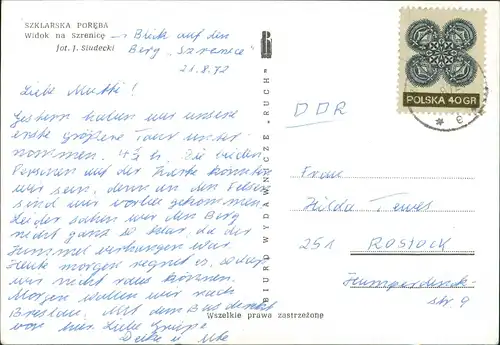 SZKLARSKA PORĘBA
Widok na Szrenicę
fot. J. Siudecki
Blick auf den
Berg „Szrenice"
21.8.72
Liebe Mutti!
Gestern haben wir unsere
erste größere Tour unter-
nommen. 4½ h. Die beiden
Personen auf der Karte könnten
wir sein, denn an den Felsen
sind wir vorbei gekommen.
Leider sahen wir den Berg
nicht ganz so klar, da der
Himmel verhangen war.
Heute morgen regnet es, so daß
wir nicht raus können.
Morgen wollen wir nach
Breslau. Mit dem Bus direkt
von hier. Liebe Grüße
Deine u. Ute
BIURO WYDAWNICZE „RUCH"
Wszelkie prawa zastrzeżone
POLSKA 40 GR
DDR
Frau
Hilda Tewes
251 Rostock
Humperdinck-
str. 9